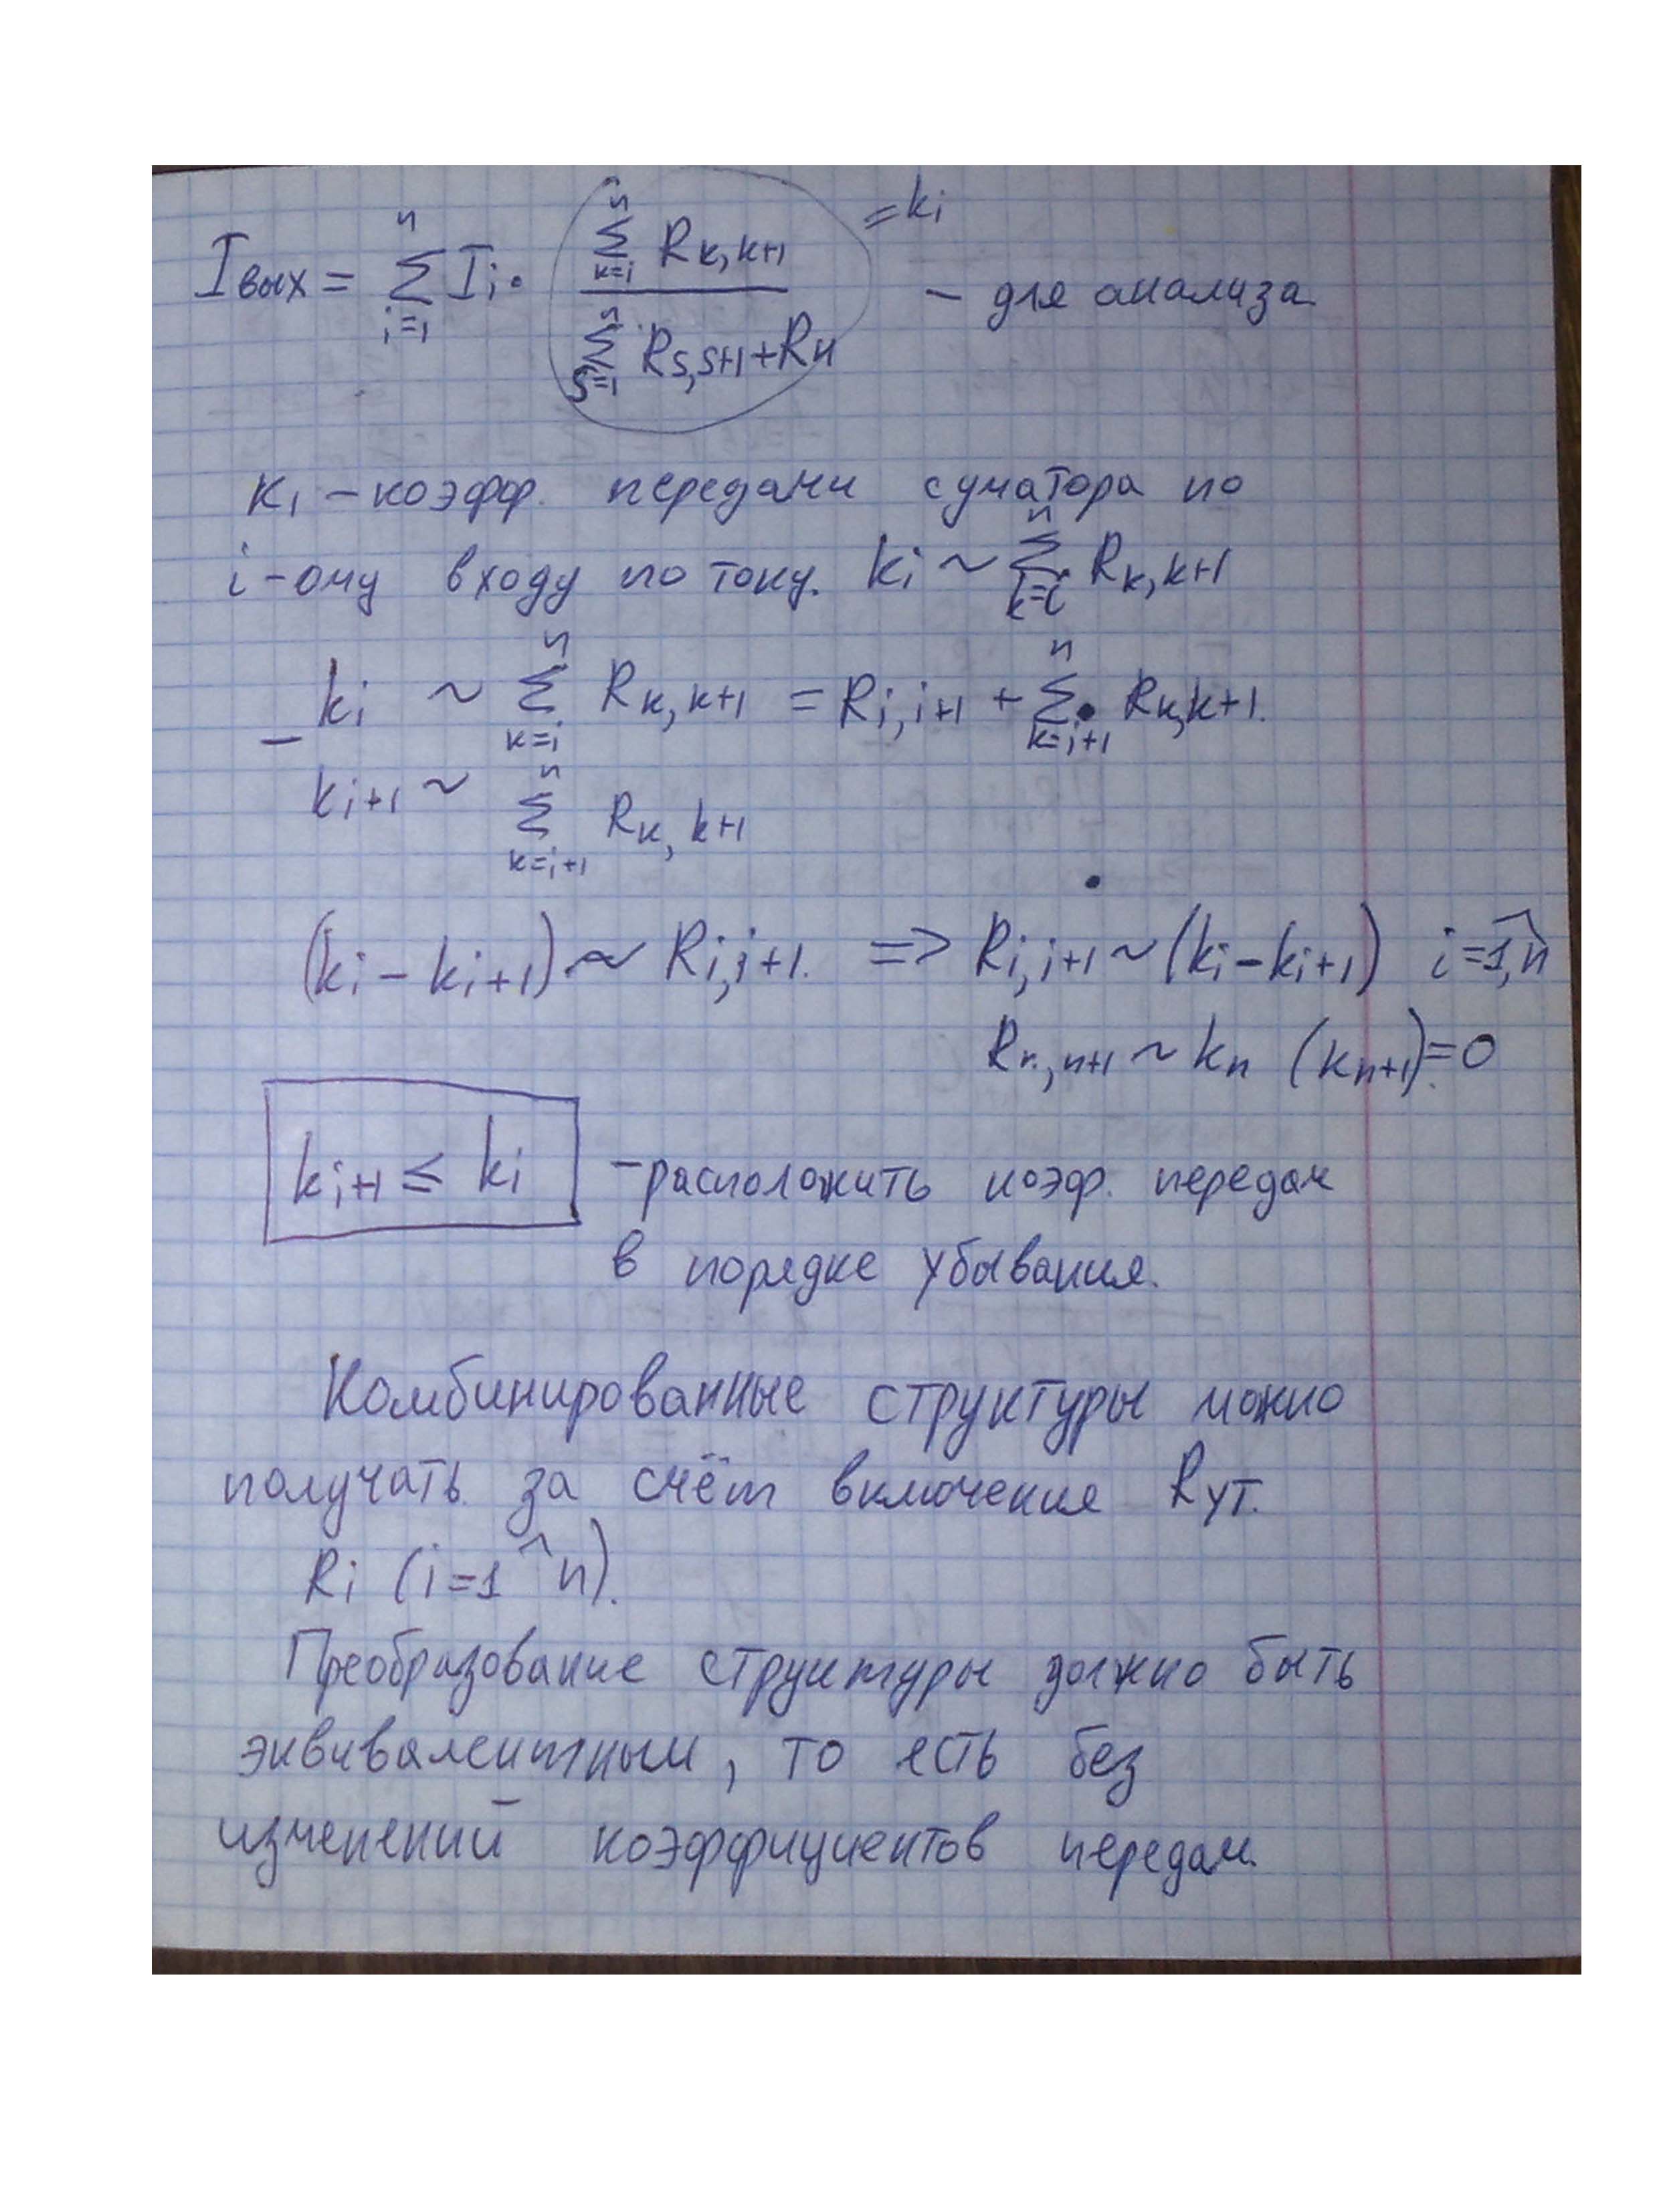 Iвых = ∑_{i=1}^{n} Ii · (∑_{k=i}^{n} Rk,k+1) / (∑_{s=1}^{n} Rs,s+1 + Rн) = ki – для анализа
K1 – коэфф. передачи суматора по
i-ому входу по току. ki ~ ∑_{k=i}^{n} Rk,k+1
– ki ~ ∑_{k=i}^{n} Rk,k+1 = Ri,i+1 + ∑_{k=i+1}^{n} Rk,k+1.
ki+1 ~ ∑_{k=i+1}^{n} Rk,k+1
(ki – ki+1) ~ Ri,i+1. => Ri,i+1 ~ (ki – ki+1) i=1,n
Rn,n+1 ~ kn (kn+1)=0
ki+1 ≤ ki – расположить коэф. передач
в порядке убывания.
Комбинированные структуры можно
получать за счёт включения Rут.
Ri (i=1^n).
Преобразование структуры должно быть
эквивалентным, то есть без
изменений коэффициентов передач.